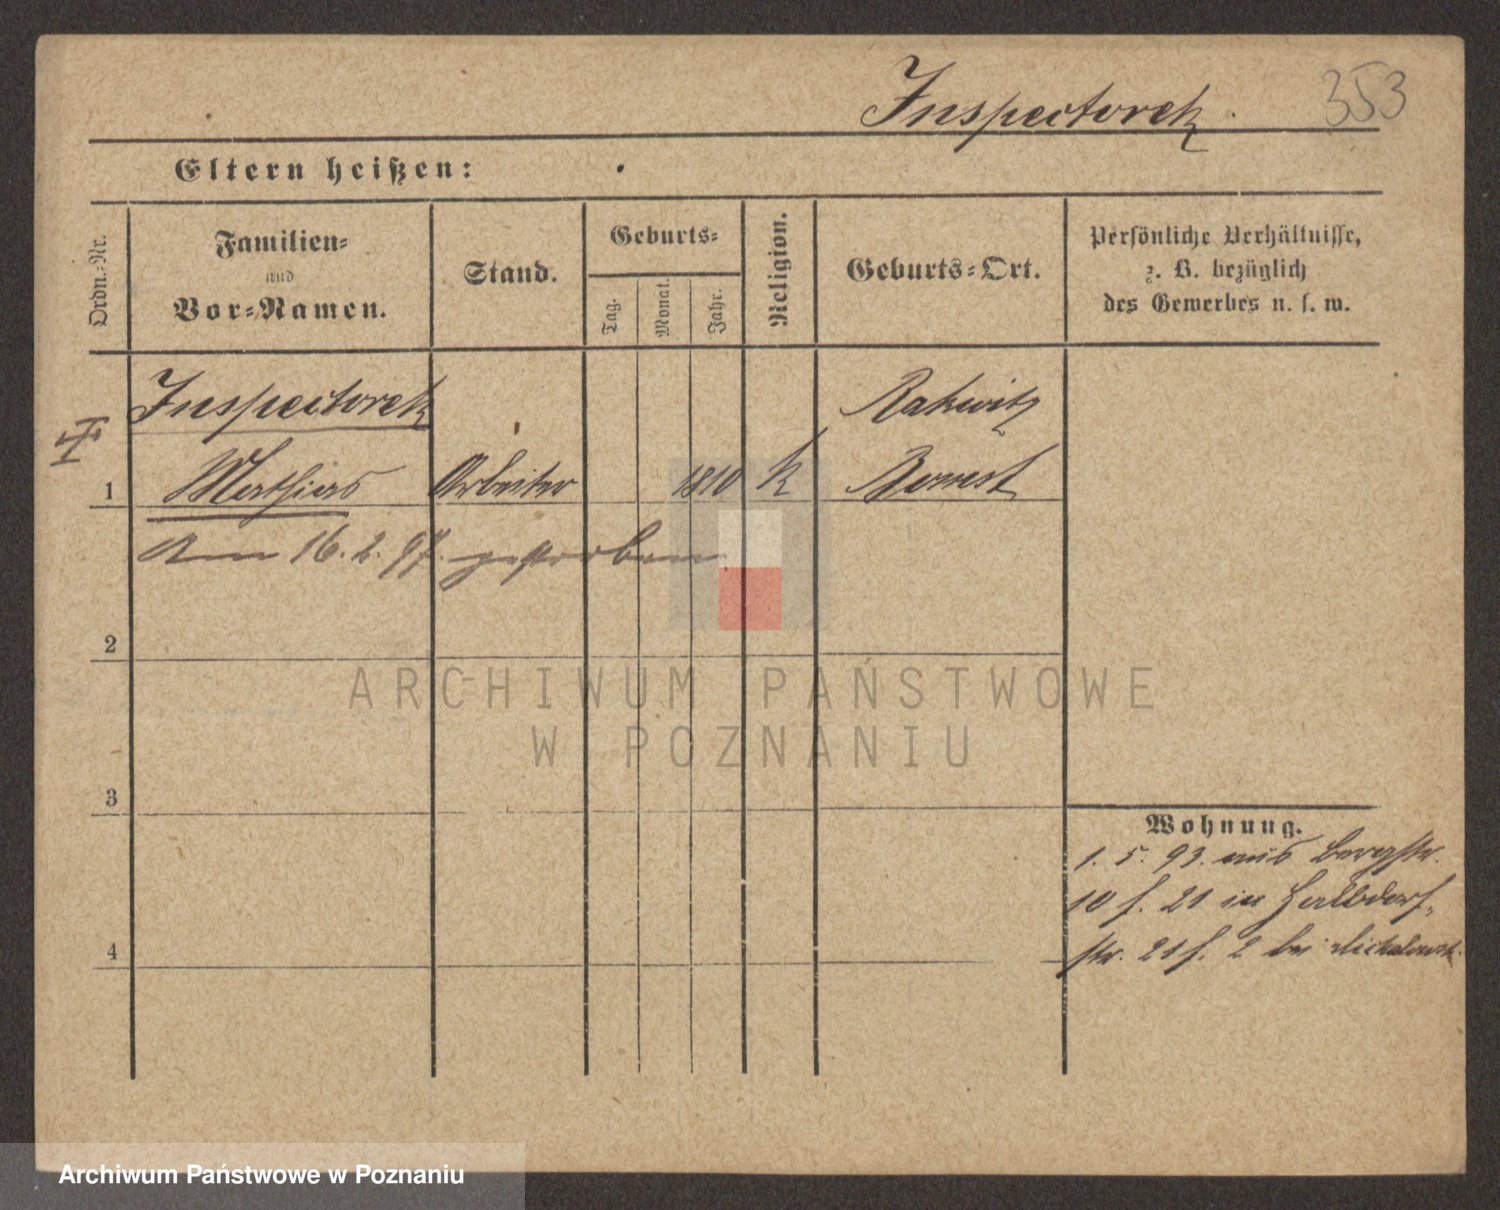 Inspectorek. 353
Eltern heißen:
Ordn.-Nr.
Familien-
und
Vor-Namen.
Stand.
Geburts-
Tag.
Monat.
Jahr.
Religion.
Geburts-Ort.
Persönliche Verhältnisse,
z. B. bezüglich
des Gewerbes u. s. w.
Inspectorek Rakwitz
1 Mathias Arbeiter 1810 k Bomst
Am 16. 2. 97. gestorben
2
3
4
Wohnung.
1. 5. 93. aus Bergstr.
10 f. 21 in Halbdorf-
str. 21 f. 2 bei
ARCHIWUM PAŃSTWOWE
W POZNANIU
Archiwum Państwowe w Poznaniu